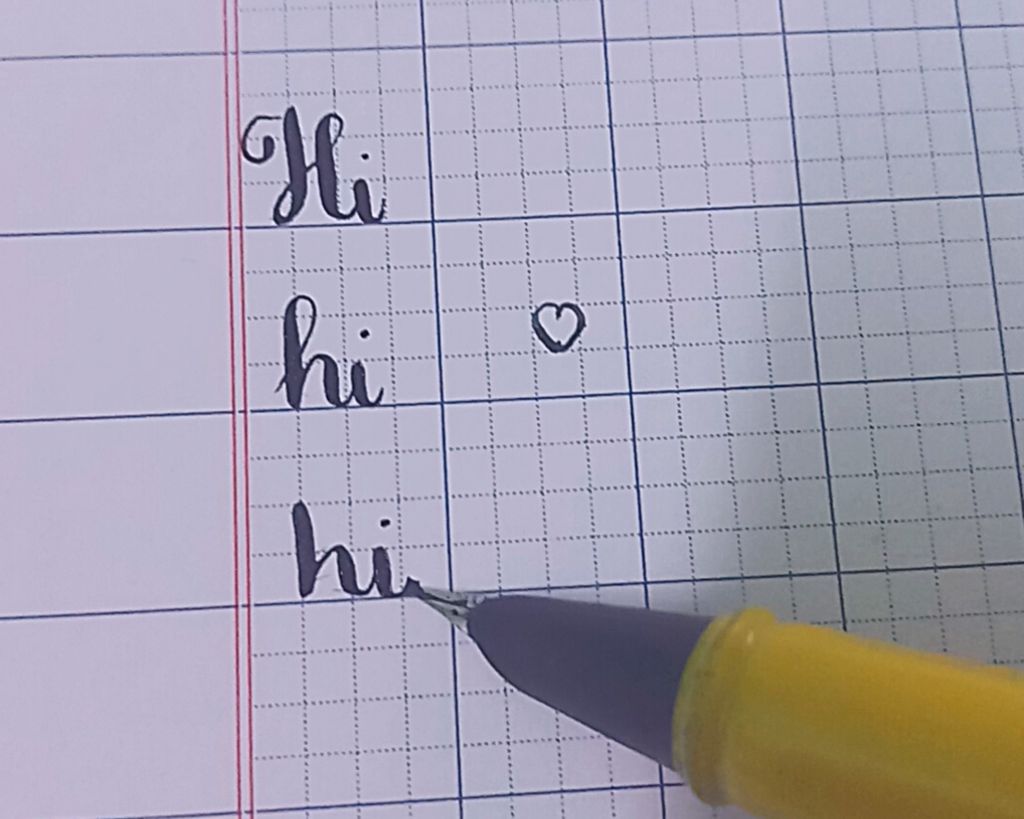 Hi
hi
hi